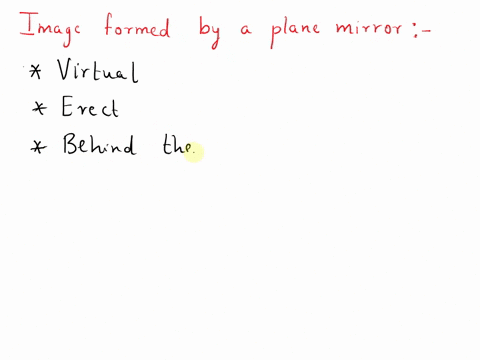 Image formed by a plane mirror:-
* Virtual
* Erect
* Behind the